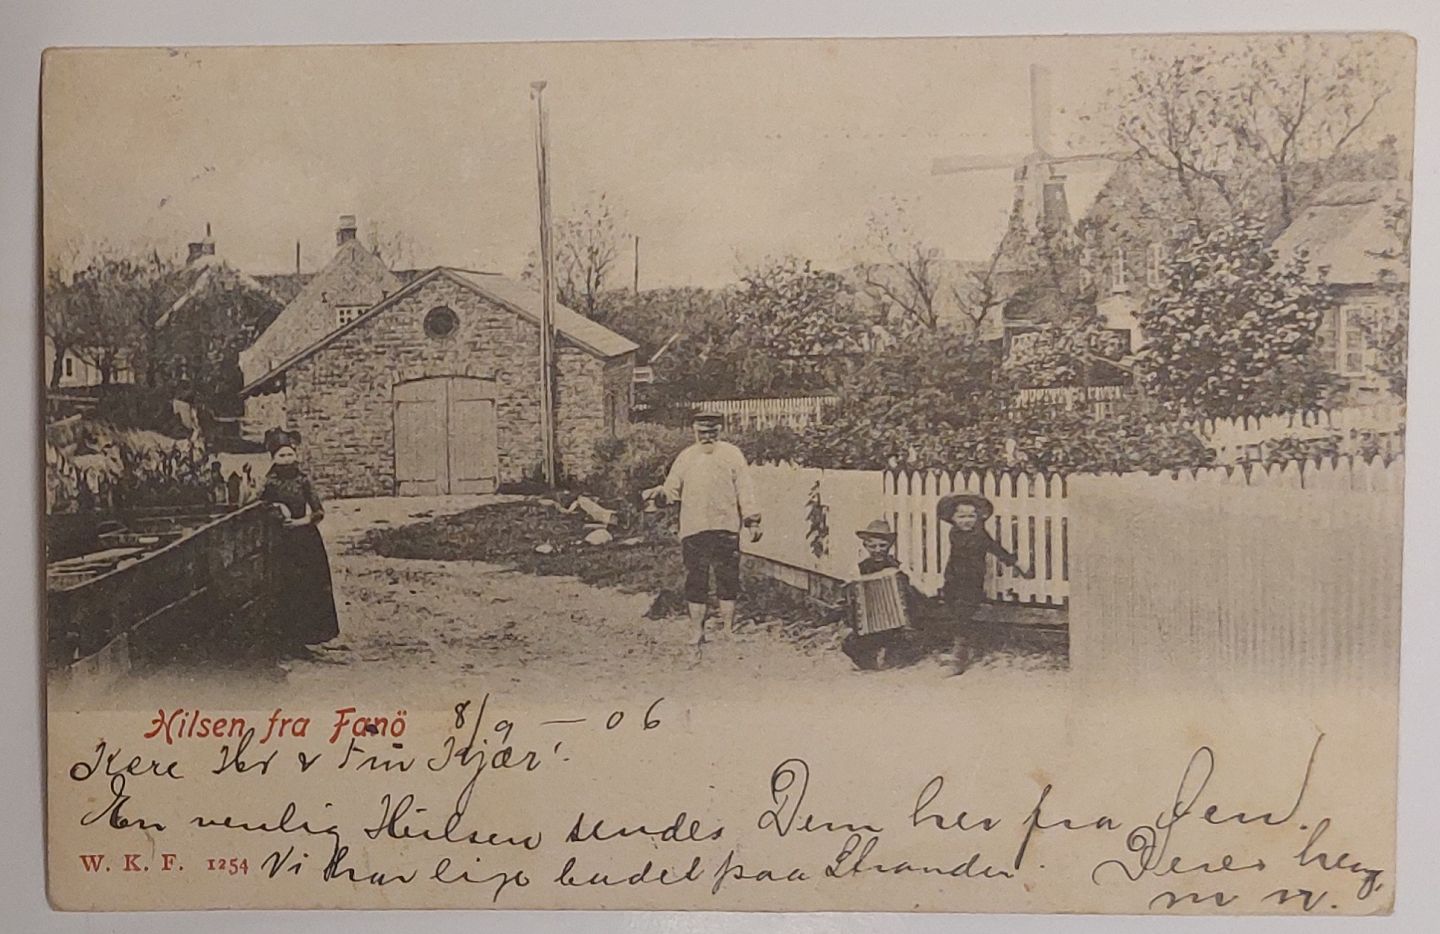 Hilsen fra Fanö
8/9 – 06
Kære Hr & Fru Kjær!
En venlig Hilsen sendes Dem her fra Øen.
Vi har lige badet paa Stranden. Deres heng.
W. K. F. 1254
m n.